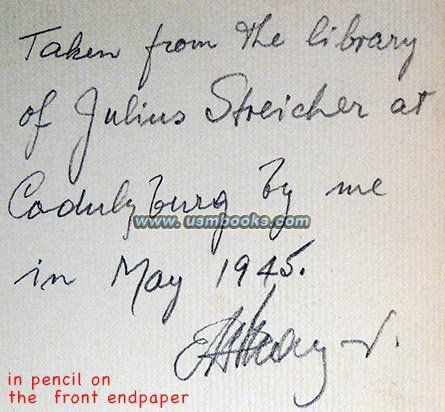 Taken from the library
of Julius Streicher at
Cadulzburg by me
www.usmbooks.com
in May 1945.
in pencil on
the front endpaper